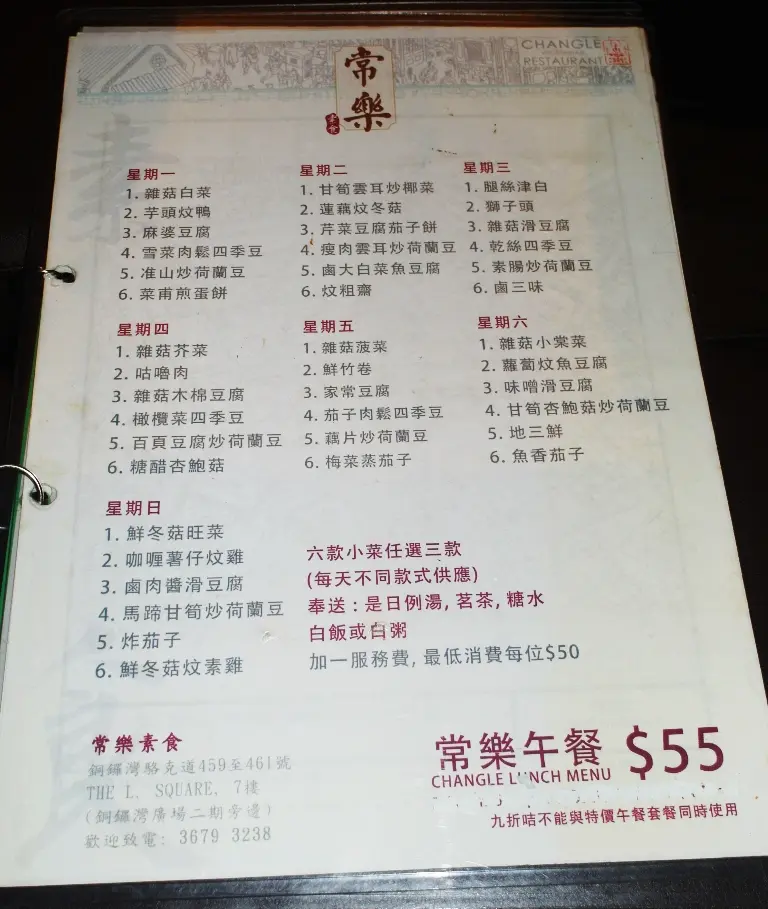 CHANGLE
RESTAURANT
常樂
素食
星期一
1. 雜菇白菜
2. 芋頭炆鴨
3. 麻婆豆腐
4. 雪菜肉鬆四季豆
5. 准山炒荷蘭豆
6. 菜甫煎蛋餅
星期二
1. 甘筍雲耳炒椰菜
2. 蓮藕炆冬菇
3. 芹菜豆腐茄子餅
4. 瘦肉雲耳炒荷蘭豆
5. 鹵大白菜魚豆腐
6. 炆粗齋
星期三
1. 腿絲津白
2. 獅子頭
3. 雜菇滑豆腐
4. 乾絲四季豆
5. 素腸炒荷蘭豆
6. 鹵三味
星期四
1. 雜菇芥菜
2. 咕嚕肉
3. 雜菇木棉豆腐
4. 橄欖菜四季豆
5. 百頁豆腐炒荷蘭豆
6. 糖醋杏鮑菇
星期五
1. 雜菇菠菜
2. 鮮竹卷
3. 家常豆腐
4. 茄子肉鬆四季豆
5. 藕片炒荷蘭豆
6. 梅菜蒸茄子
星期六
1. 雜菇小棠菜
2. 蘿蔔炆魚豆腐
3. 味噌滑豆腐
4. 甘筍杏鮑菇炒荷蘭豆
5. 地三鮮
6. 魚香茄子
星期日
1. 鮮冬菇旺菜
2. 咖喱薯仔炆雞
3. 鹵肉醬滑豆腐
4. 馬蹄甘筍炒荷蘭豆
5. 炸茄子
6. 鮮冬菇炆素雞
六款小菜任選三款
(每天不同款式供應)
奉送 : 是日例湯, 茗茶, 糖水
白飯或白粥
加一服務費, 最低消費每位$50
常樂素食
銅鑼灣駱克道459至461號
THE L. SQUARE, 7樓
(銅鑼灣廣場二期旁邊)
歡迎致電: 3679 3238
常樂午餐 $55
CHANGLE LUNCH MENU
九折咭不能與特價午餐套餐同時使用